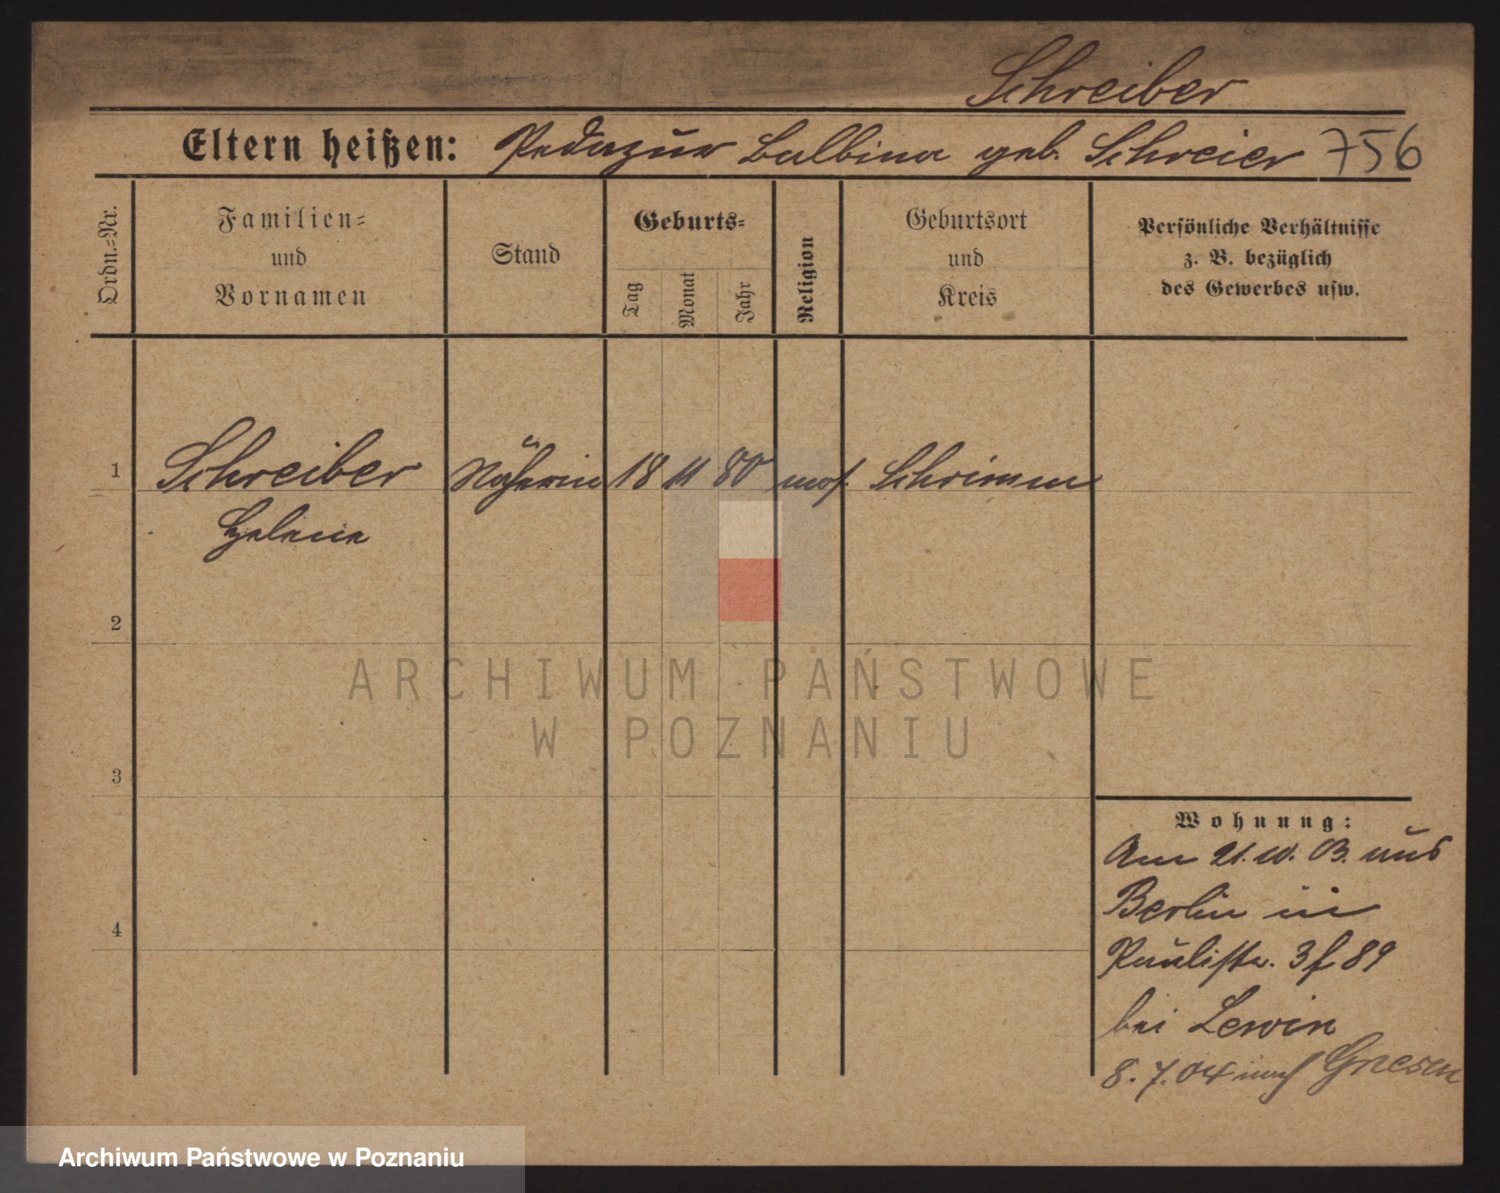 Schreiber
Eltern heißen: Pedazur Balbina geb. Schreier 756
Ordn.=Nr.
Familien=
und
Vornamen
Stand
Geburts=
Tag
Monat
Jahr
Religion
Geburtsort
und
Kreis
Persönliche Verhältnisse
z. B. bezüglich
des Gewerbes usw.
1 Schreiber Näherin 18 11 80 mos. Schrimm
Helene
2
3
4
Wohnung:
Am 21.10.03. aus
Berlin in
Paulistr. 3 f 89
bei Lewin
8.7.04 nach Gnesen
ARCHIWUM PAŃSTWOWE
W POZNANIU
Archiwum Państwowe w Poznaniu